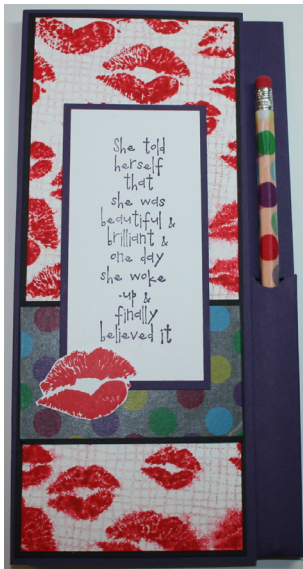 She told
herself
that
she was
beautiful &
brilliant &
one day
she woke
up &
finally
believed it